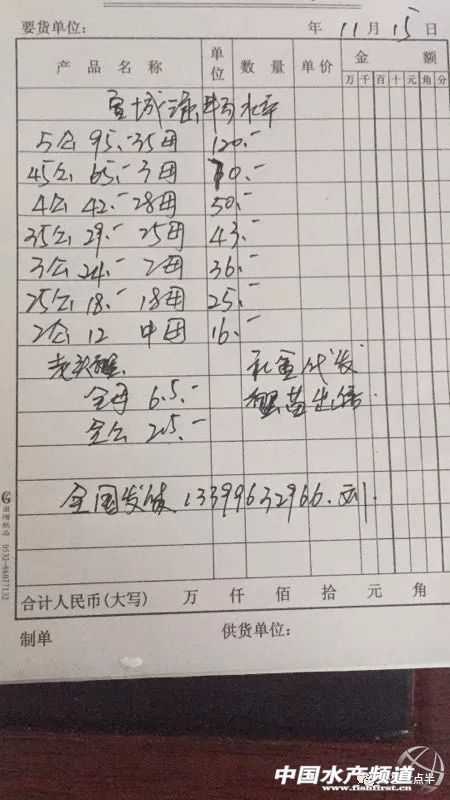 要货单位: 年 11月 15日
产品名称 单位 数量 单价 金额
万千百十元角分
宣城 水库
5公 95.- 35母 120.-
45公 65.- 3母 70.-
4公 42.- 28母 50.-
35公 29.- 25母 43.-
3公 24.- 2母 36.-
25公 18.- 18母 25.-
2公 12 中母 16.-
礼盒代发
全母 6.5.- 蟹苗出售.
全公 2.5.-
全国发货 13399632966.
合计人民币(大写) 万 仟 佰 拾 元 角
制单 供货单位:
国增纸品 0532-86077132
中国水产频道 点半
www.fishfirst.cn